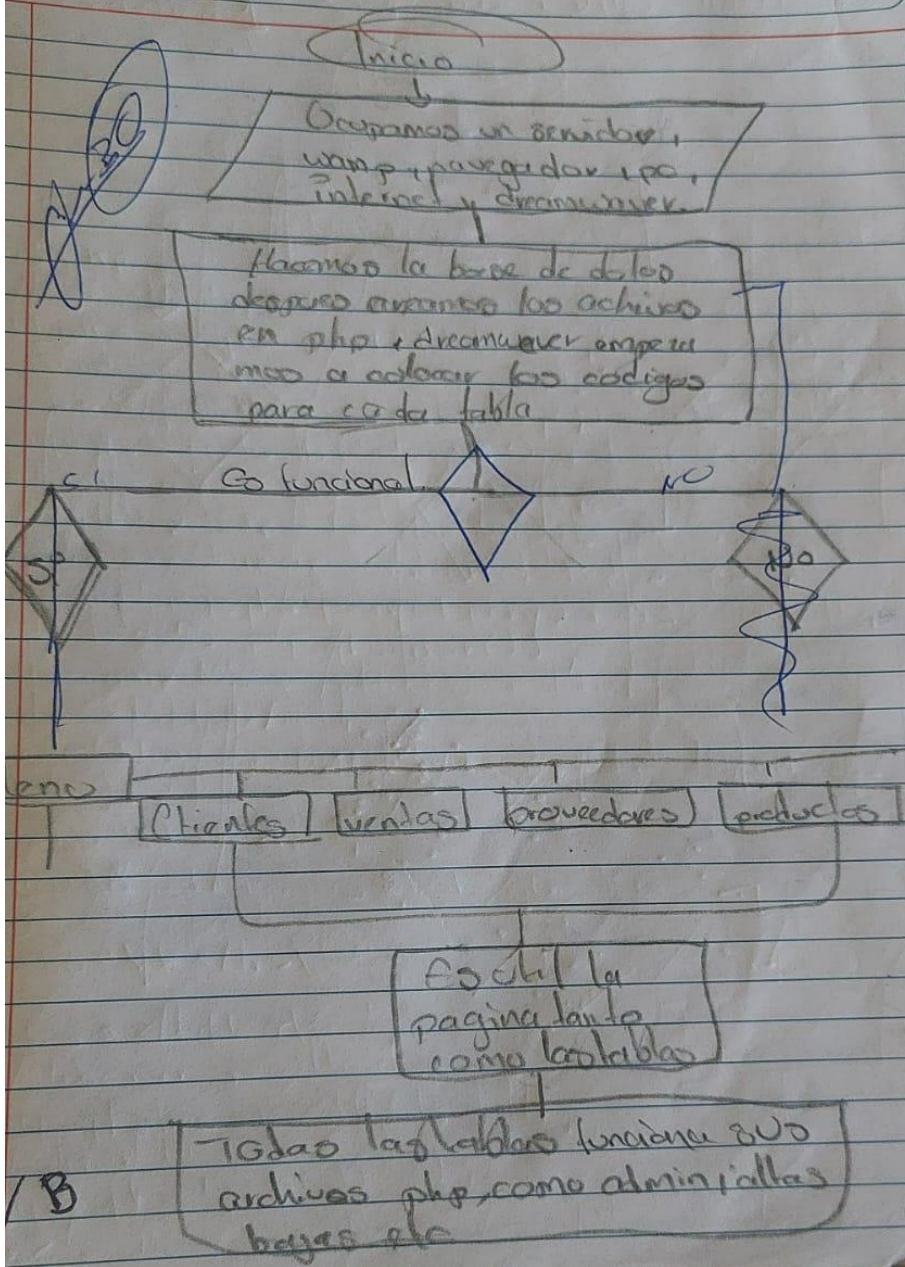 Inicio
80
Ocupamos un servidor,
wamp, navegador, pc,
internet y dreamwver.
Hacemos la base de datos
despues creamos los achivos
en php, dreamwever empeza
mos a colocar los codigos
para cada tabla
si Es funcional NO
SI NO
enu
Clientes ventas proveedores productos
Es util la
pagina tanto
como las tablas
Todas las tablas funciona sus
archivos php, como admin, altas
bajas etc
B